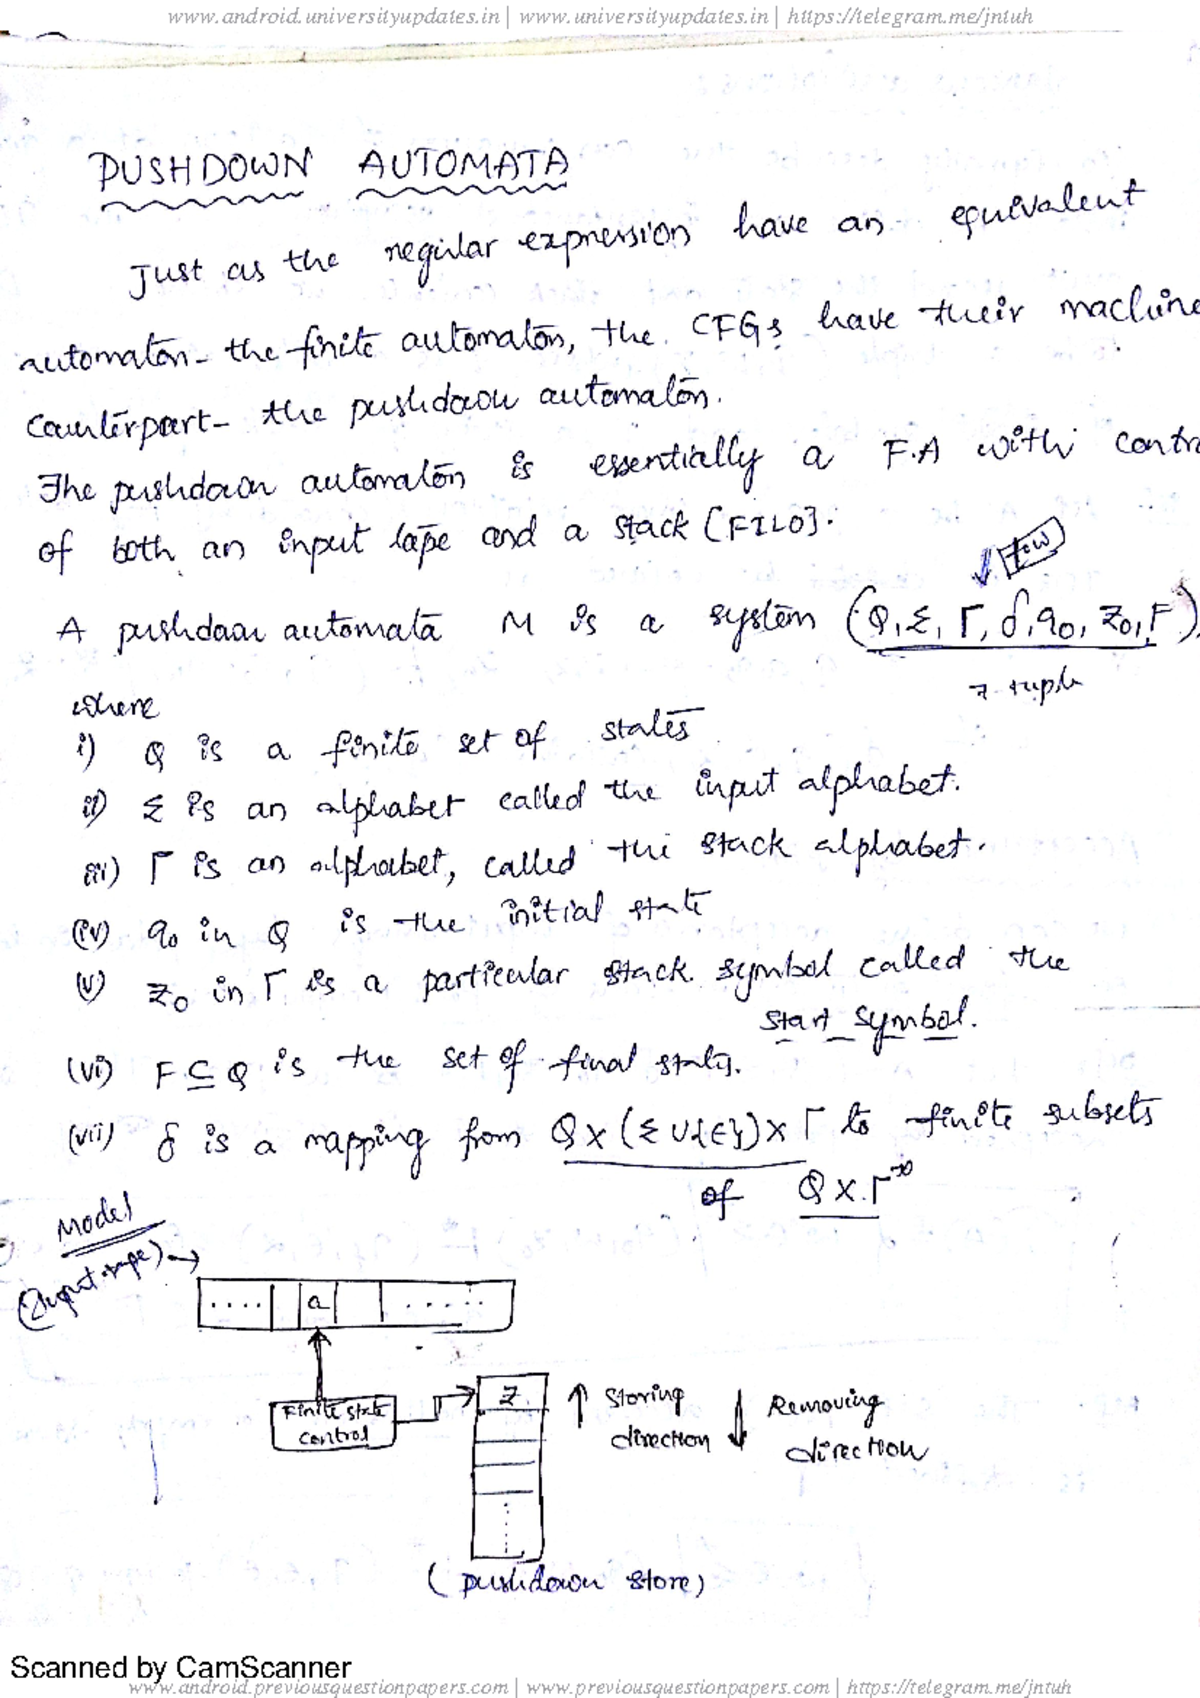 www.android.universityupdates.in | www.universityupdates.in | https://telegram.me/jntuh
PUSHDOWN AUTOMATA
Just as the regular expression have an equivalent
automaton - the finite automaton, the CFGs have their machine
Counterpart - the pushdown automaton.
The pushdown automaton is essentially a F.A with contr
of both an input tape and a stack [FILO].
A pushdown automata M is a system (Q, Σ, Γ, δ, q0, Z0, F)
7-tuple
where
i) Q is a finite set of states
ii) Σ is an alphabet called the input alphabet.
iii) Γ is an alphabet, called the stack alphabet.
(iv) q0 in Q is the initial state
(v) Z0 in Γ is a particular stack symbol called the
start symbol.
(vi) F ⊆ Q is the set of final states.
(vii) δ is a mapping from Q x (Σ ∪ {ε}) x Γ to finite subsets
of Q x Γ*
Model
(Input tape) →
.... a .....
Finite state
control
Z
↑ Storing
direction
↓ Removing
direction
(pushdown store)
Scanned by CamScanner
www.android.previousquestionpapers.com | www.previousquestionpapers.com | https://telegram.me/jntuh